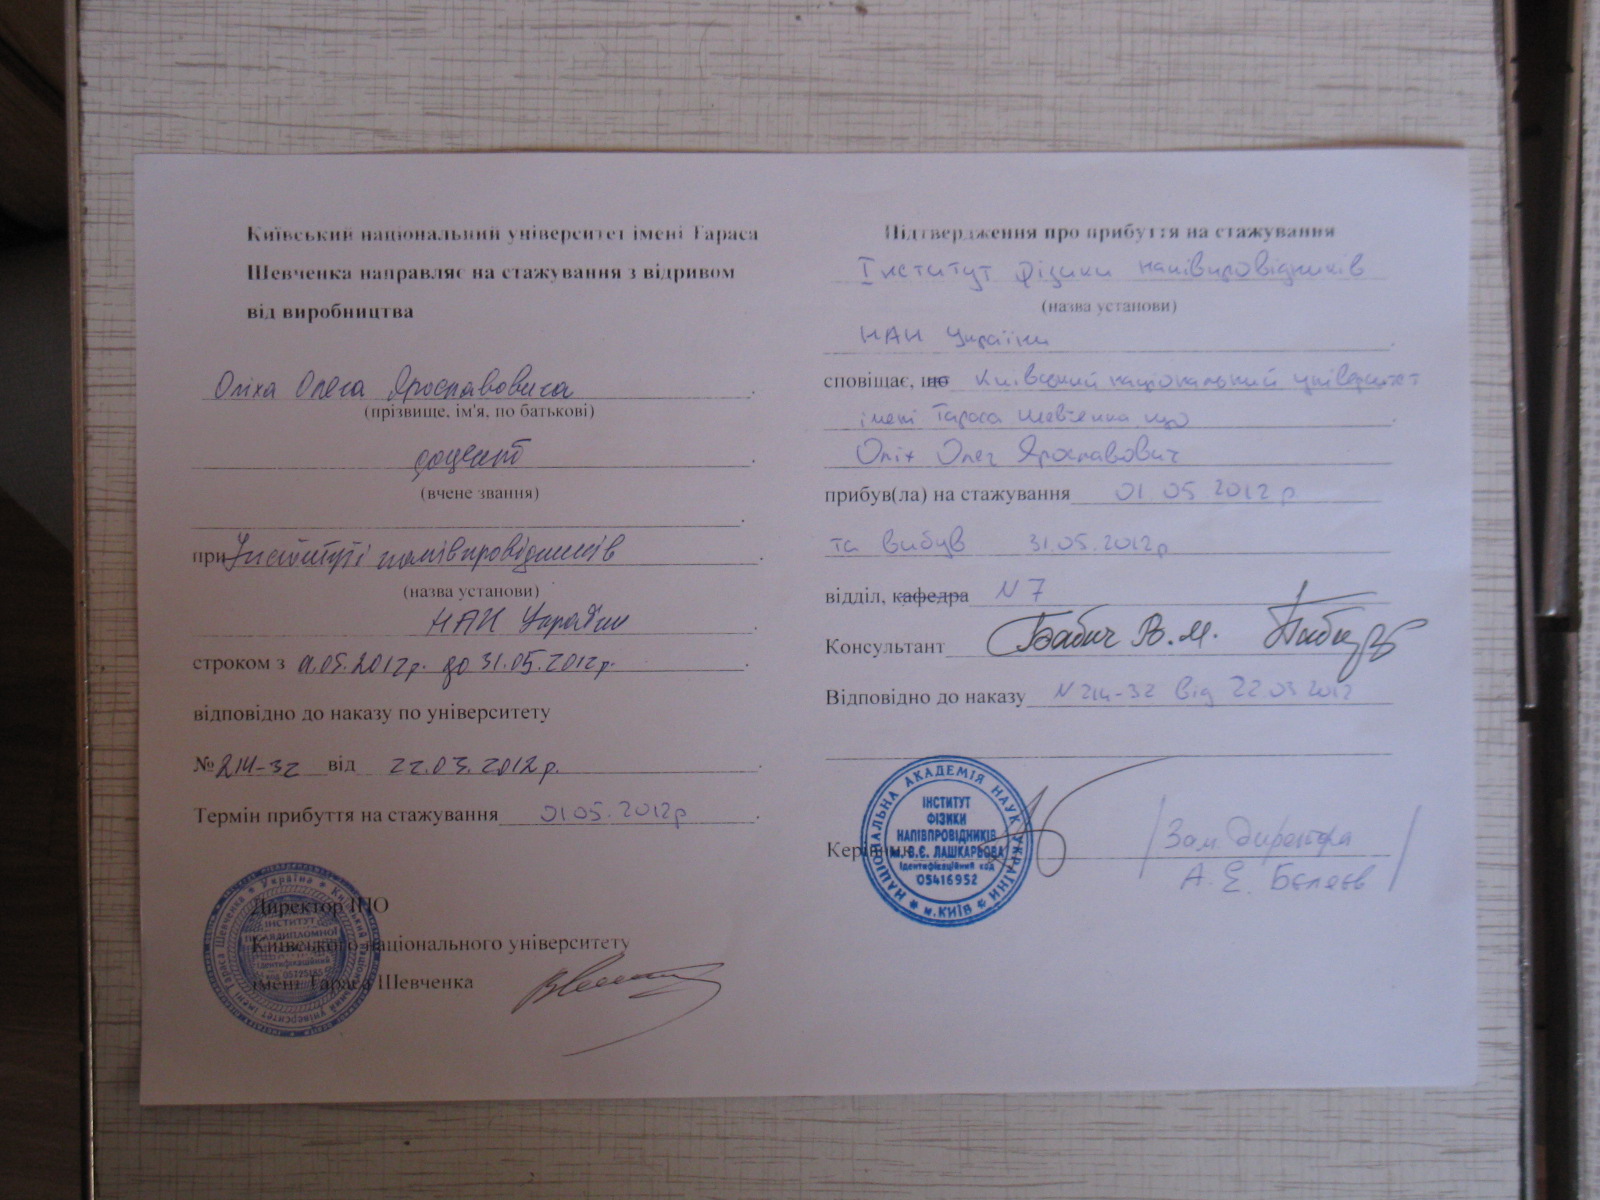 Київський національний університет імені Тараса
Шевченка направляє на стажування з відривом
від виробництва
Оліха Олега Ярославовича
(прізвище, ім'я, по батькові)
доцент
(вчене звання)
при Інституті напівпровідників
(назва установи)
НАН України
строком з 01.05.2012р. до 31.05.2012р.
відповідно до наказу по університету
№ 214-32 від 22.03.2012р.
Термін прибуття на стажування 01 05. 2012р
Директор ІПО
Київського національного університету
імені Тараса Шевченка
Підтвердження про прибуття на стажування
Інститут фізики напівпровідників
(назва установи)
НАН України
сповіщає, що Київський національний університет
імені Тараса Шевченка що
Оліх Олег Ярославович
прибув(ла) на стажування 01 05 2012 р
та вибув 31.05.2012р
відділ, кафедра N 7
Консультант Бабич В.М.
Відповідно до наказу N 214-32 від 22.03 2012
Керівник Зам. директора
А. Є. Бєляєв
НАЦІОНАЛЬНА АКАДЕМІЯ НАУК УКРАЇНИ
ІНСТИТУТ
ФІЗИКИ
НАПІВПРОВІДНИКІВ
ім. В.Є. ЛАШКАРЬОВА
Ідентифікаційний код
05416952
м. КИЇВ